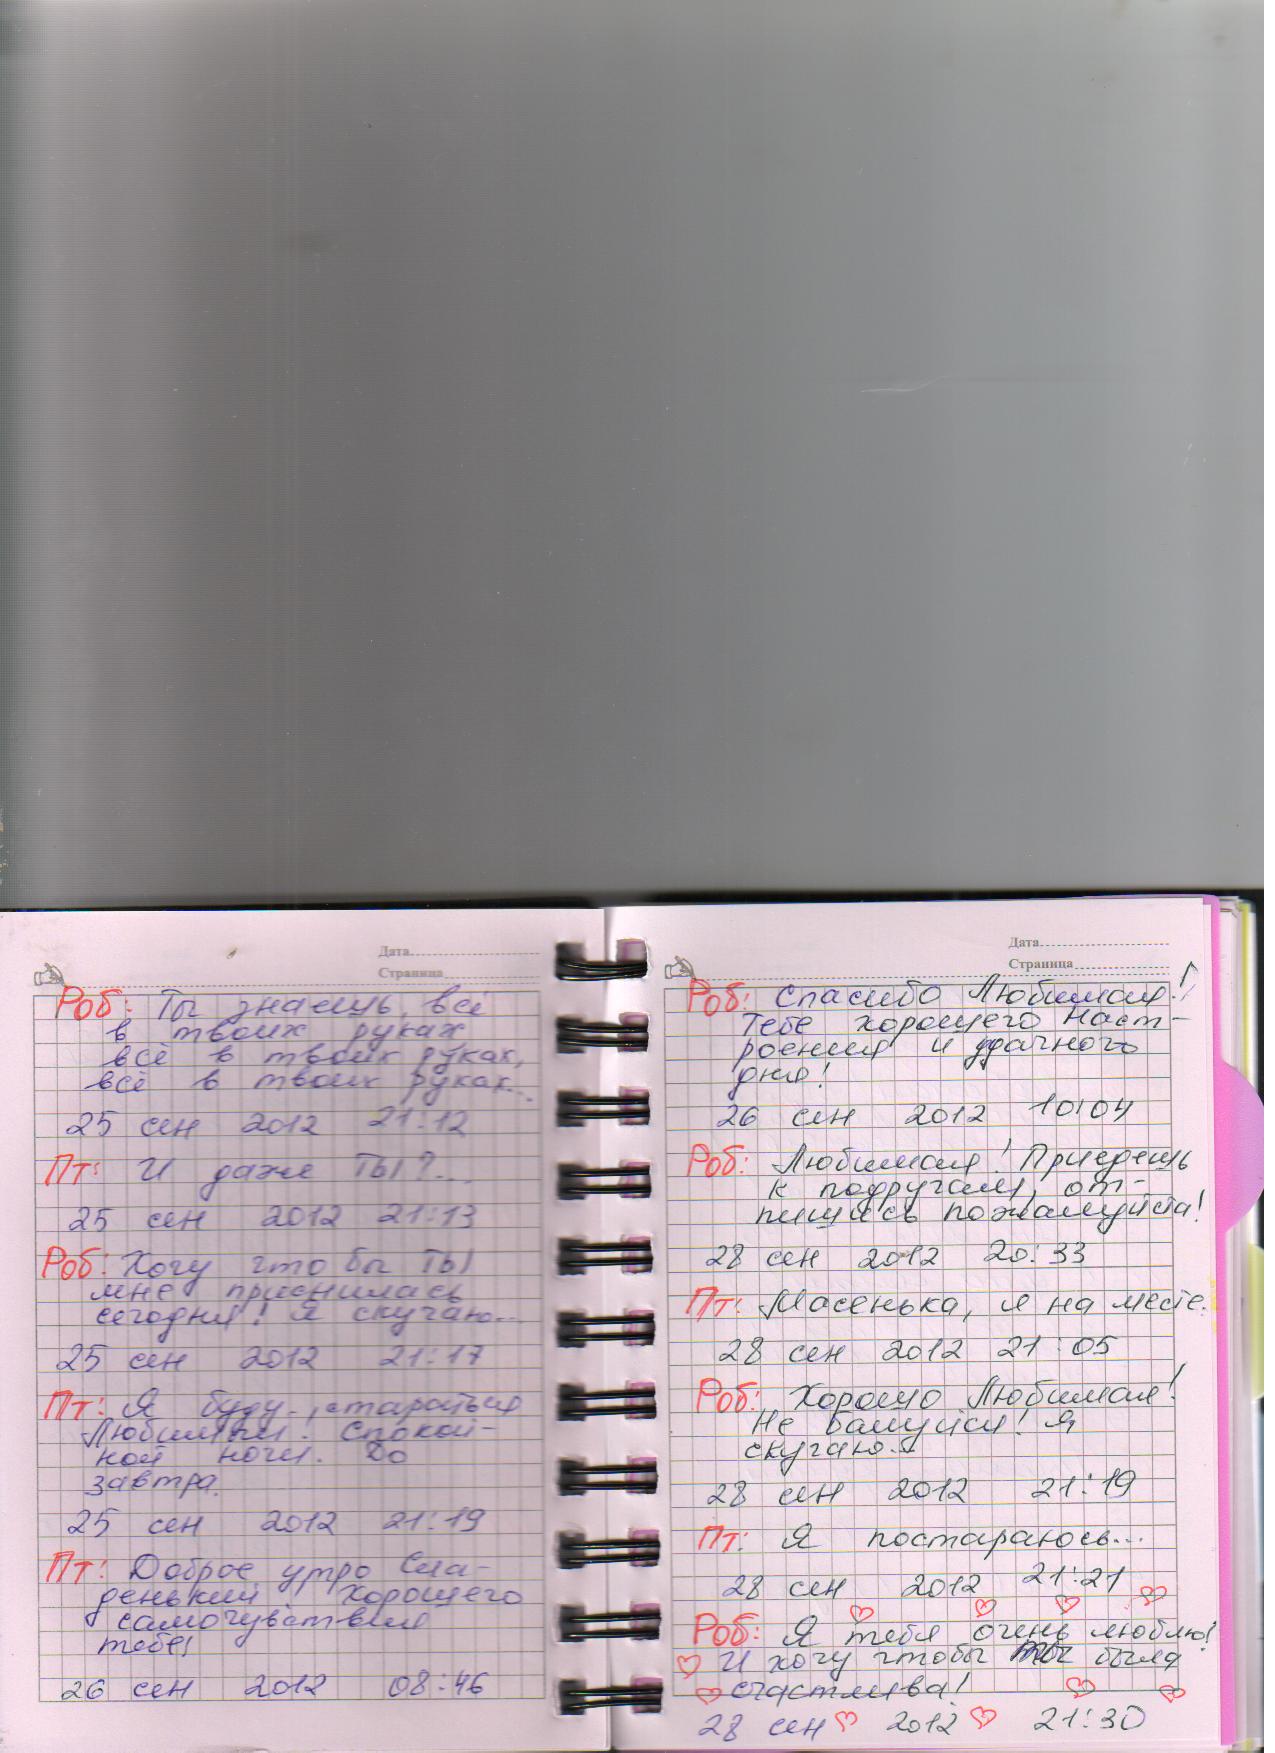 Дата
Страница
Роб: Ты знаешь, всё
в твоих руках
всё в твоих руках,
всё в твоих руках...
25 сен 2012 21:12
Пт: И даже ТЫ?
25 сен 2012 21:13
Роб: Хочу что бы ТЫ
мне приснилась
сегодня! Я скучаю...
25 сен 2012 21:17
Пт: Я буду стараться
Любимый. Спокой-
ной ночи. До
завтра.
25 сен 2012 21:19
Пт: Доброе утро Сла-
денький Хорошего
самочувствия
тебе!
26 сен 2012 08:46
Дата
Страница
Роб: Спасибо Любимая!
Тебе хорошего наст-
роения и удачного
дня!
26 сен 2012 10:04
Роб: Любимая! Приедешь
к подругам, от-
пишись пожалуйста!
28 сен 2012 20:33
Пт: Масенька, я на месте.
28 сен 2012 21:05
Роб: Хорошо Любимая!
Не балуйся! Я
скучаю...
28 сен 2012 21:19
Пт: Я постараюсь...
28 сен 2012 21:21
Роб: Я тебя очень люблю!
И хочу чтобы ты была
счастлива!
28 сен 2012 21:30